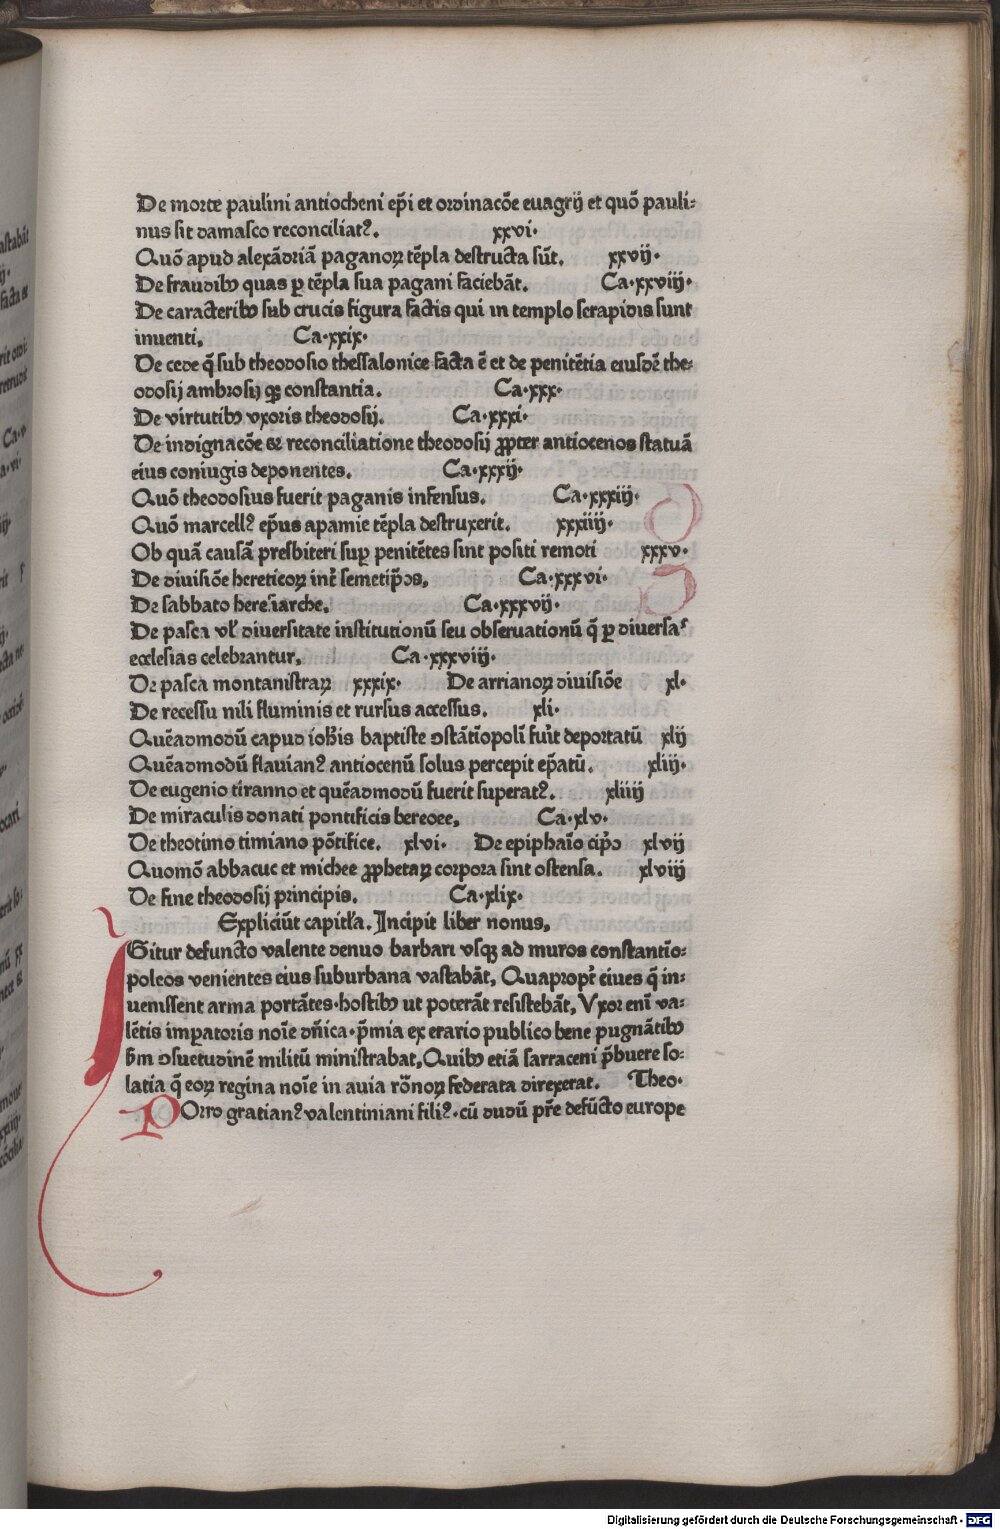 De morte paulini antiocheni ep̄i et ordinacōe euagrij et quō pauli-
nus sit damasco reconciliatꝰ. xxvi.
Quō apud alexādriā paganoꝝ tēpla destructa sūt. xxvij.
De fraudibꝰ quas ꝑ tēpla sua pagani faciebāt. Ca.xxviij.
De caracteribꝰ sub crucis figura factis qui in templo serapidis sunt
inuenti. Ca.xxix.
De cede q̄ sub theodosio thessalonice facta ē et de penitētia eiusdē the-
odosij ambrosij qꝫ constantia. Ca.xxx.
De virtutibꝰ vxoris theodosij. Ca.xxxi.
De indignacōe et reconciliatione theodosij ꝓpter antiocenos statuā
eius coniugis deponentes. Ca.xxxij.
Quō theodosius fuerit paganis infensus. Ca.xxxiij.
Quō marcellꝰ ep̄us apamie tēpla destruxerit. xxxiiij.
Ob quā causā presbiteri suꝑ penitētes sint positi remoti xxxv.
De diuisiōe hereticoꝝ int̄ semetip̄os. Ca.xxxvi.
De sabbato heresiarche. Ca.xxxvij.
De pasca vl̄ diuersitate institutionū seu obseruationū q̄ ꝑ diuersas
ecclesias celebrantur. Ca.xxxviij.
De pasca montanistraꝝ xxxix. De arrianoꝝ diuisiōe xl.
De recessu nili fluminis et rursus accessus. xli.
Quēadmodū capud ioh̄is baptiste ꝯstātiopolī fuīt deportatū xlij
Quēadmodū flauianꝰ antiocenū solus percepit ep̄atū. xliij.
De eugenio tiranno et quēadmodū fuerit superatꝰ. xliiij
De miraculis donati pontificis bereoee. Ca.xlv.
De theotimo timiano pōtifice. xlvi. De epiphaīo cip̄o xlvij
Quomō abbacuc et michee ꝓphetaꝝ corpora sint ostensa. xlviij
De fine theodosij principis. Ca.xlix.
Expliciūt capitl̄a. Incipit liber nonus.
IGitur defuncto valente denuo barbari vsqꝫ ad muros constantio-
poleos venientes eius suburbana vastabāt, Quapropt̄ ciues q̄ in-
uenissent arma portātes.hostibꝰ ut poterāt resistebāt, Vxor enī va-
lētis imꝑatoris noīe dn̄ica.p̄mia ex erario publico bene pugnātibꝰ
ẜm ꝯsuetudinē militū ministrabat, Quibꝰ etiā sarraceni p̄buere so-
latia q̄ eoꝝ regina noīe in auia rōnoꝝ federata direxerat. Theo.
POrro gratianꝰ valentiniani filiꝰ.cū dudū pr̄e defūcto europe
Digitalisierung gefördert durch die Deutsche Forschungsgemeinschaft - DFG